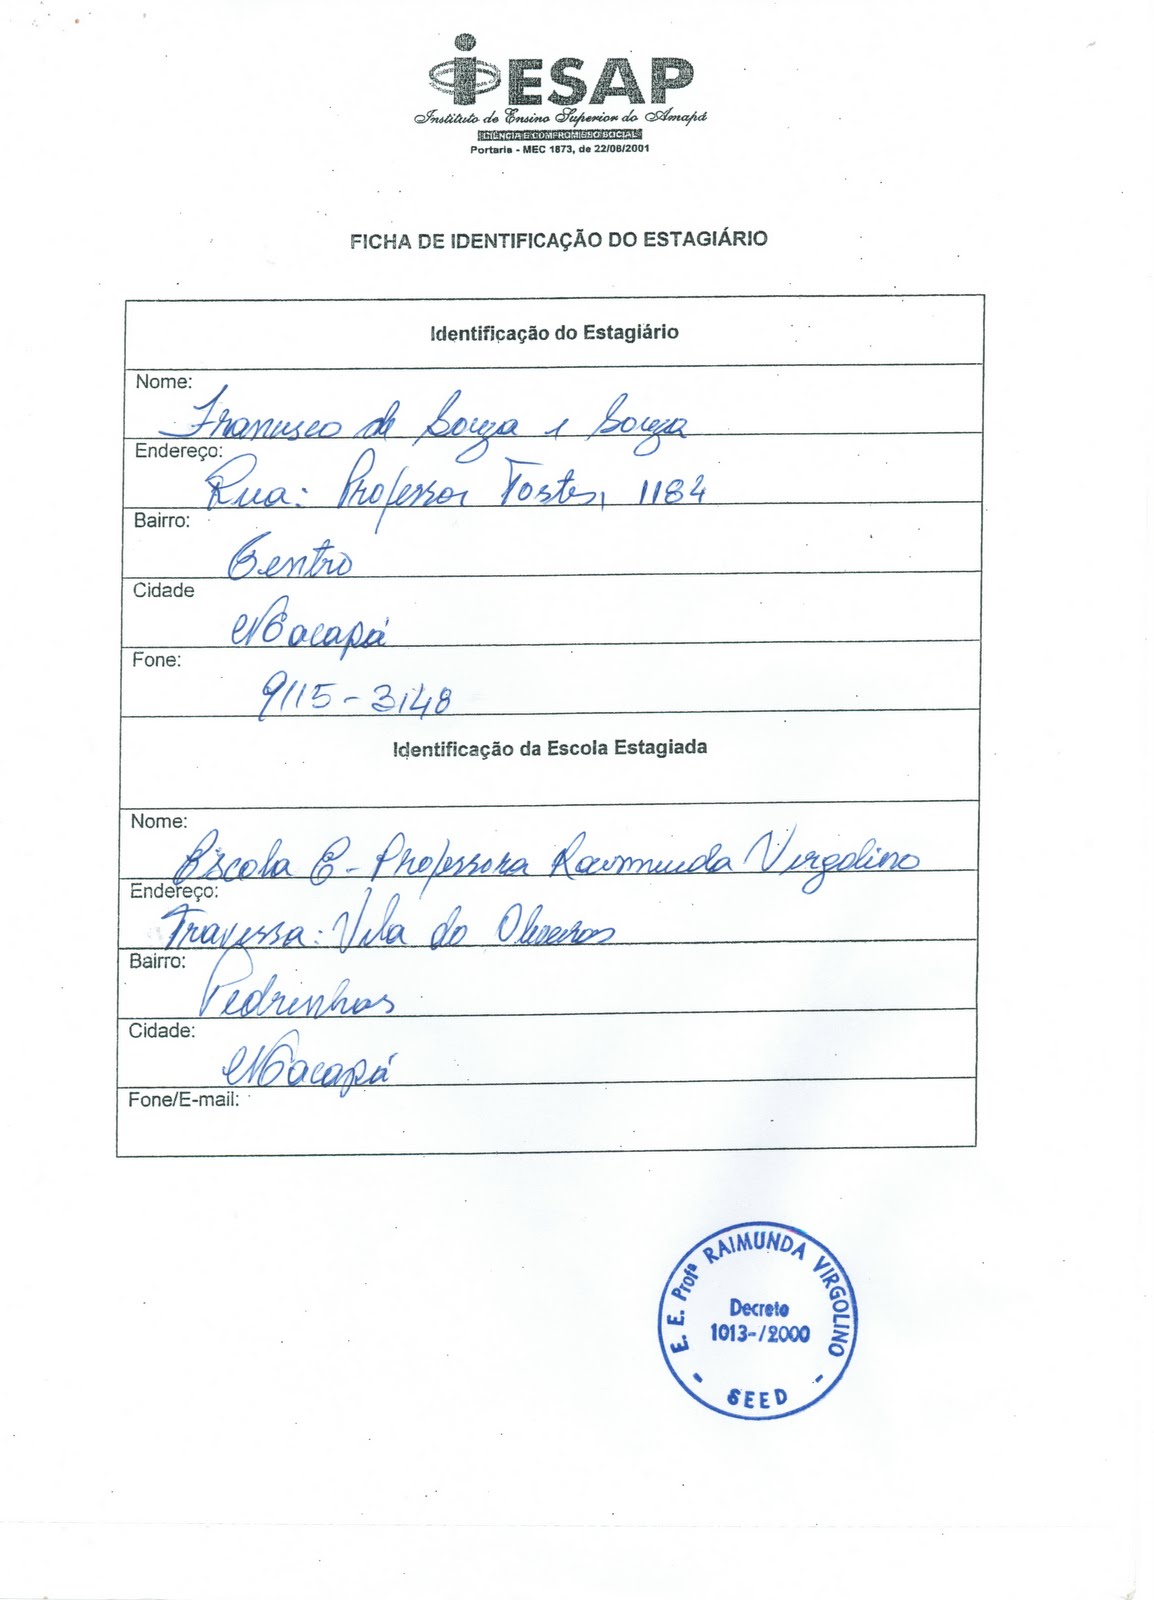 iESAP
Instituto de Ensino Superior do Amapá
CIÊNCIA E COMPROMISSO SOCIAL
Portaria - MEC 1873, de 22/08/2001
FICHA DE IDENTIFICAÇÃO DO ESTAGIÁRIO
Identificação do Estagiário
Nome:
Francisco de Souza e Souza
Endereço:
Rua: Professor Tostes, 1184
Bairro:
Centro
Cidade
Macapá
Fone:
9115-3148
Identificação da Escola Estagiada
Nome:
Escola E - Professora Raimunda Virgolino
Endereço:
Travessa: Vila do Oliveiras
Bairro:
Pedrinhas
Cidade:
Macapá
Fone/E-mail:
E. E. Profª RAIMUNDA VIRGOLINO
Decreto
1013-/2000
- SEED -